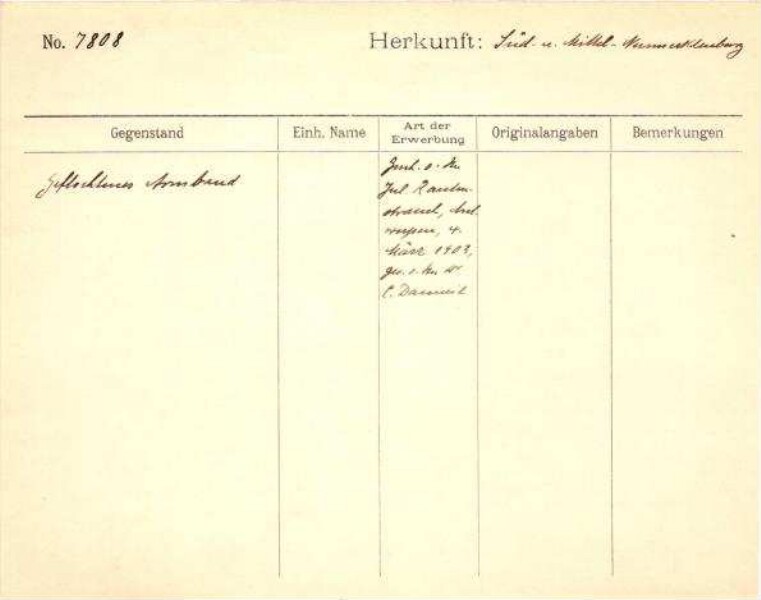 No. 7808 Herkunft: Süd- u. Mittel-Neumecklenburg
Gegenstand Einh. Name Art der Erwerbung Originalangaben Bemerkungen
Geflochtenes Armband
Gesch. v. Hn
Jul. Rauten-
strauch, Ant
werpen, 4.
März 1903,
ges. v. Hn Dr
C. Danneil